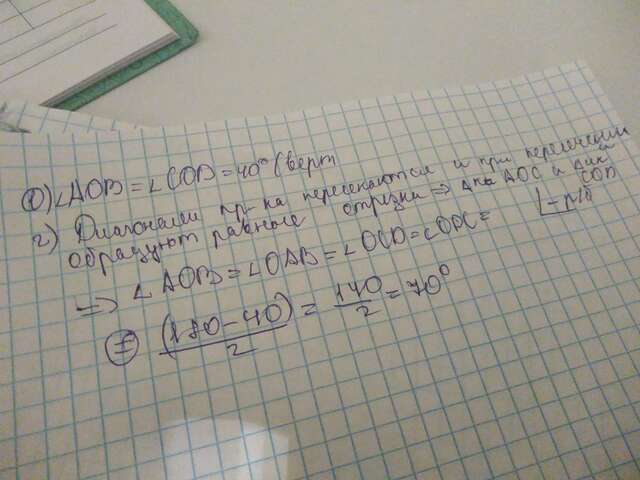 1) ∠AOB = ∠COD = 40° (верт
2) Диагонали пр-ка пересекаются и при пересечении
образуют равные отрезки ⇒ Δка AOC и Δка COD
- р/б
⇒ ∠AOB = ∠OAB = ∠OCD = ∠ODC =
= (180-40)/2 = 140/2 = 70°